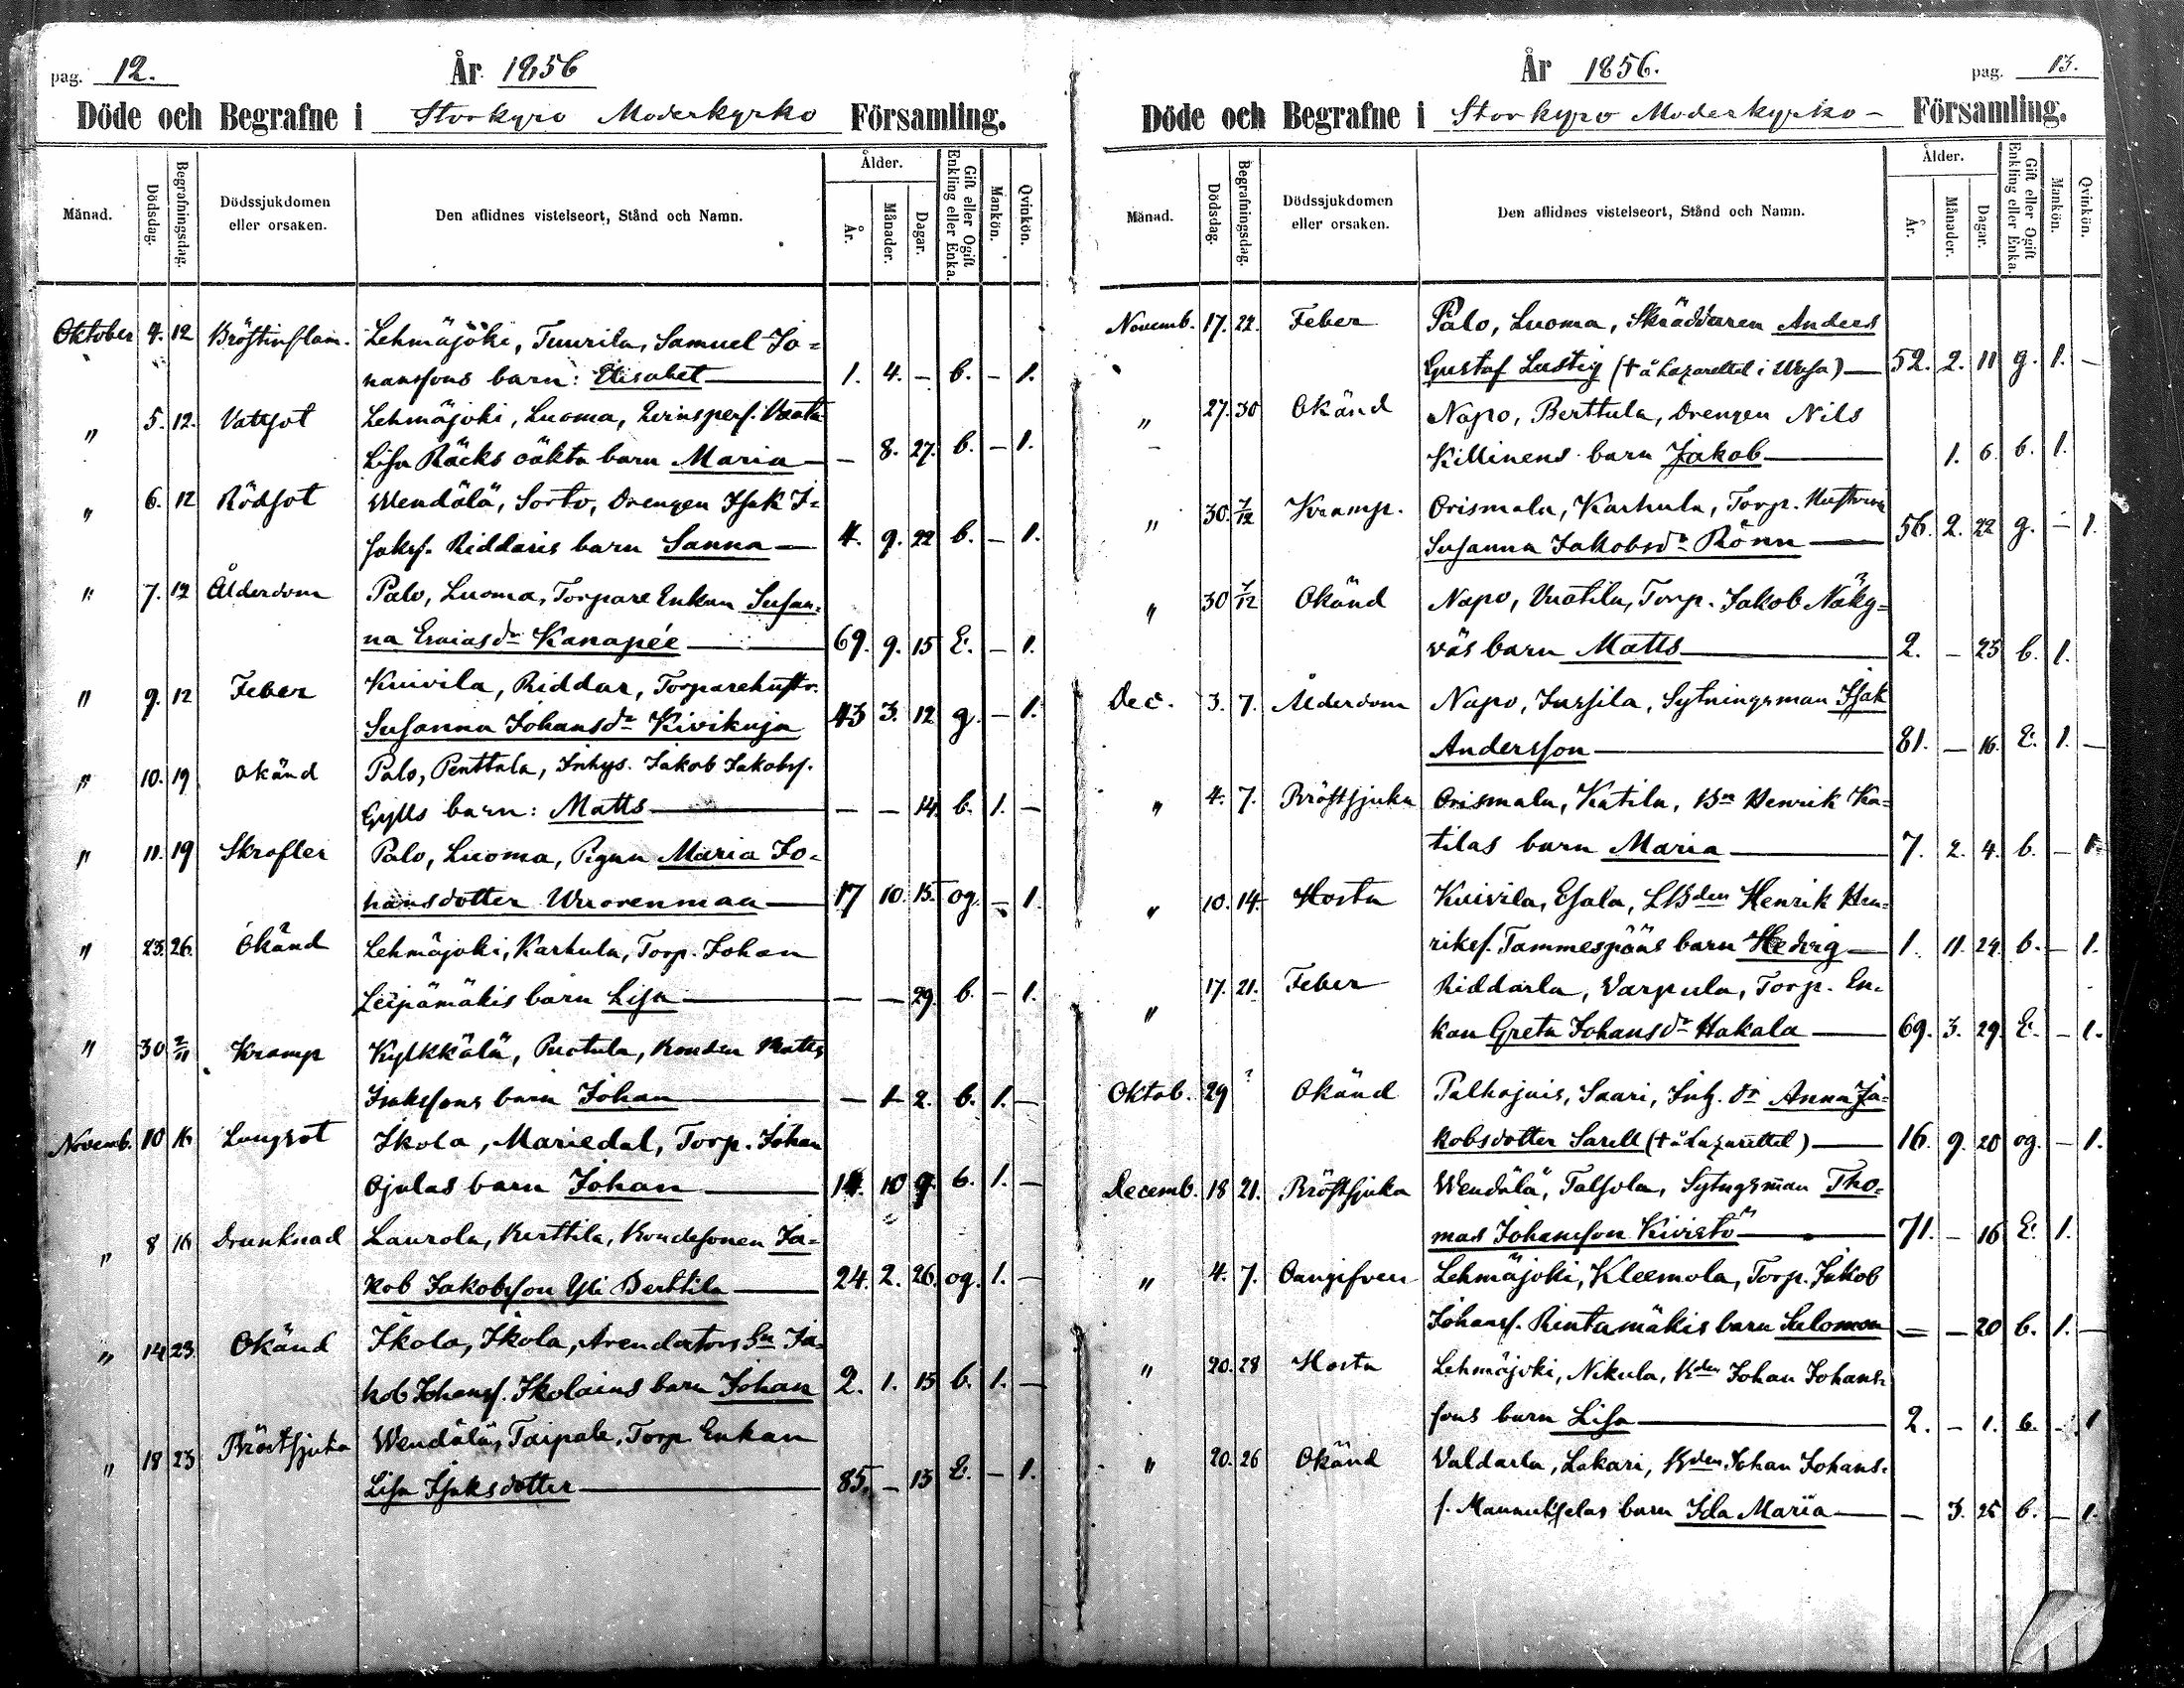 pag. 12.
År 1856
Döde och Begrafne i Storkyro Moderkyrko Församling.
Månad.
Dödsdag.
Begrafningsdag.
Dödssjukdomen eller orsaken.
Den aflidnes vistelseort, Stånd och Namn.
Ålder.
År.
Månader.
Dagar.
Gift eller Ogift Enkling eller Enka.
Mankön.
Qvinkön.
Oktober 4. 12 Bröstinflam. Lehmäjoki, Tuurila, Samuel Jo=
hanssons barn: Elisabet 1. 4. – b. – 1.
" 5. 12. Vattsot Lehmäjoki, Luoma,
Lisa Räcks oäkta barn Maria – 8. 27. b. – 1.
" 6. 12 Rödsot Wendälä, Sorto, Drengen Isak I=
saksf. Riddaris barn Sanna 4. 9. 22 b. – 1.
" 7. 12 Ålderdom Palo, Luoma, Torpare Enkan Susan=
na Esaiasdr Kanapée 69. 9. 15 E. – 1.
" 9. 12 Feber Kuivila, Riddar, Torparehustr.
Susanna Johansdr Kivikuja 43 3. 12 g. – 1.
" 10. 19 Okänd Palo, Penttala, Inhys. Jakob Jakobsf.
Gylls barn: Matts – – 14. b. 1. –
" 11. 19 Skrofler Palo, Luoma, Pigan Maria Jo=
hansdotter Wuorenmaa 17 10. 15. og. – 1.
" 23. 26. Okänd Lehmäjoki, Karhula, Torp. Johan
Leipämäkis barn Lisa – – 29. b. – 1.
" 30 2/11 Kramp Kylkkälä, Puotula, Bonden Matts
Isakssons barn Johan – 1 2. b. 1. –
Novemb. 10 16 Lungsot Ikola, Mariedal, Torp. Johan
Ojalas barn Johan 14. 10 9. b. 1. –
" 8 16 Drunknad Laurola, Berttila, Bondesonen Ja=
kob Jakobsson Yli Berttila 24. 2. 26. og. 1. –
" 14 23. Okänd Ikola, Ikola, Arendators Sn Ja=
kob Johansf. Ikolains barn Johan 2. 1. 15 b. 1. –
" 18 23 Bröstsjuka Wendälä, Taipale, Torp. Enkan
Lisa Isaksdotter 85. – 13 E. – 1.
År 1856.
pag. 13.
Döde och Begrafne i Storkyro Moderkyrko- Församling.
Månad.
Dödsdag.
Begrafningsdag.
Dödssjukdomen eller orsaken.
Den aflidnes vistelseort, Stånd och Namn.
Ålder.
År.
Månader.
Dagar.
Gift eller Ogift Enkling eller Enka.
Mankön.
Qvinkön.
Novemb. 17. 22. Feber Palo, Luoma, Skräddaren Anders
Gustaf Lustig († å Lazarettet i Wasa) 52. 2. 11 g. 1. –
" 27. 30 Okänd Napo, Berttula, Drengen Nils
Killinens barn Jakob 1. 6. b. 1.
" 30. 7/12 Kramp. Orismala, Karhula, Torp. Hustrun
Susanna Jakobsdr Rönn 56. 2. 22 g. – 1.
" 30 7/12 Okänd Napo, Vuotila, Torp. Jakob Näky=
väs barn Matts 2. – 23 b. 1.
Dec. 3. 7. Ålderdom Napo, Jussila, Sytningsman Isak
Andersson 81. – 16. E. 1. –
" 4. 7. Bröstsjuka Orismala, Katila, Bn Henrik Ka=
tilas barn Maria 7. 2. 4. b. – 1.
" 10. 14. Hosta Kuivila, Esala, LBden Henrik Hen=
riksf. Tammespääs barn Hedvig 1. 11. 24. b. – 1.
" 17. 21. Feber Riddarla, Varpula, Torp. En=
kan Greta Johansdr Hakala 69. 3. 29. E. – 1.
Oktob. 29 ? Okänd Palhojais, Saari, Inh. dr Anna Ja=
kobsdotter Sarell († å Lazarettet) 16. 9. 20 og. – 1.
Decemb. 18 21. Bröstsjuka Wendälä, Talsola, Sytngsman Tho=
mas Johansson Kivistö 71. – 16 E. 1.
" 4. 7. Oangifven Lehmäjoki, Kleemola, Torp. Jakob
Johansf. Rintamäkis barn Salomon – – 20 b. 1. –
" 20. 28 Hosta Lehmäjoki, Nikula, Bden Johan Johans=
sons barn Lisa 2. – 1. b. – 1
" 20. 26 Okänd Valdarla, Lakari, Bden Johan Johans=
f. Mannukselas barn Ida Maria – 3. 25 b. – 1.